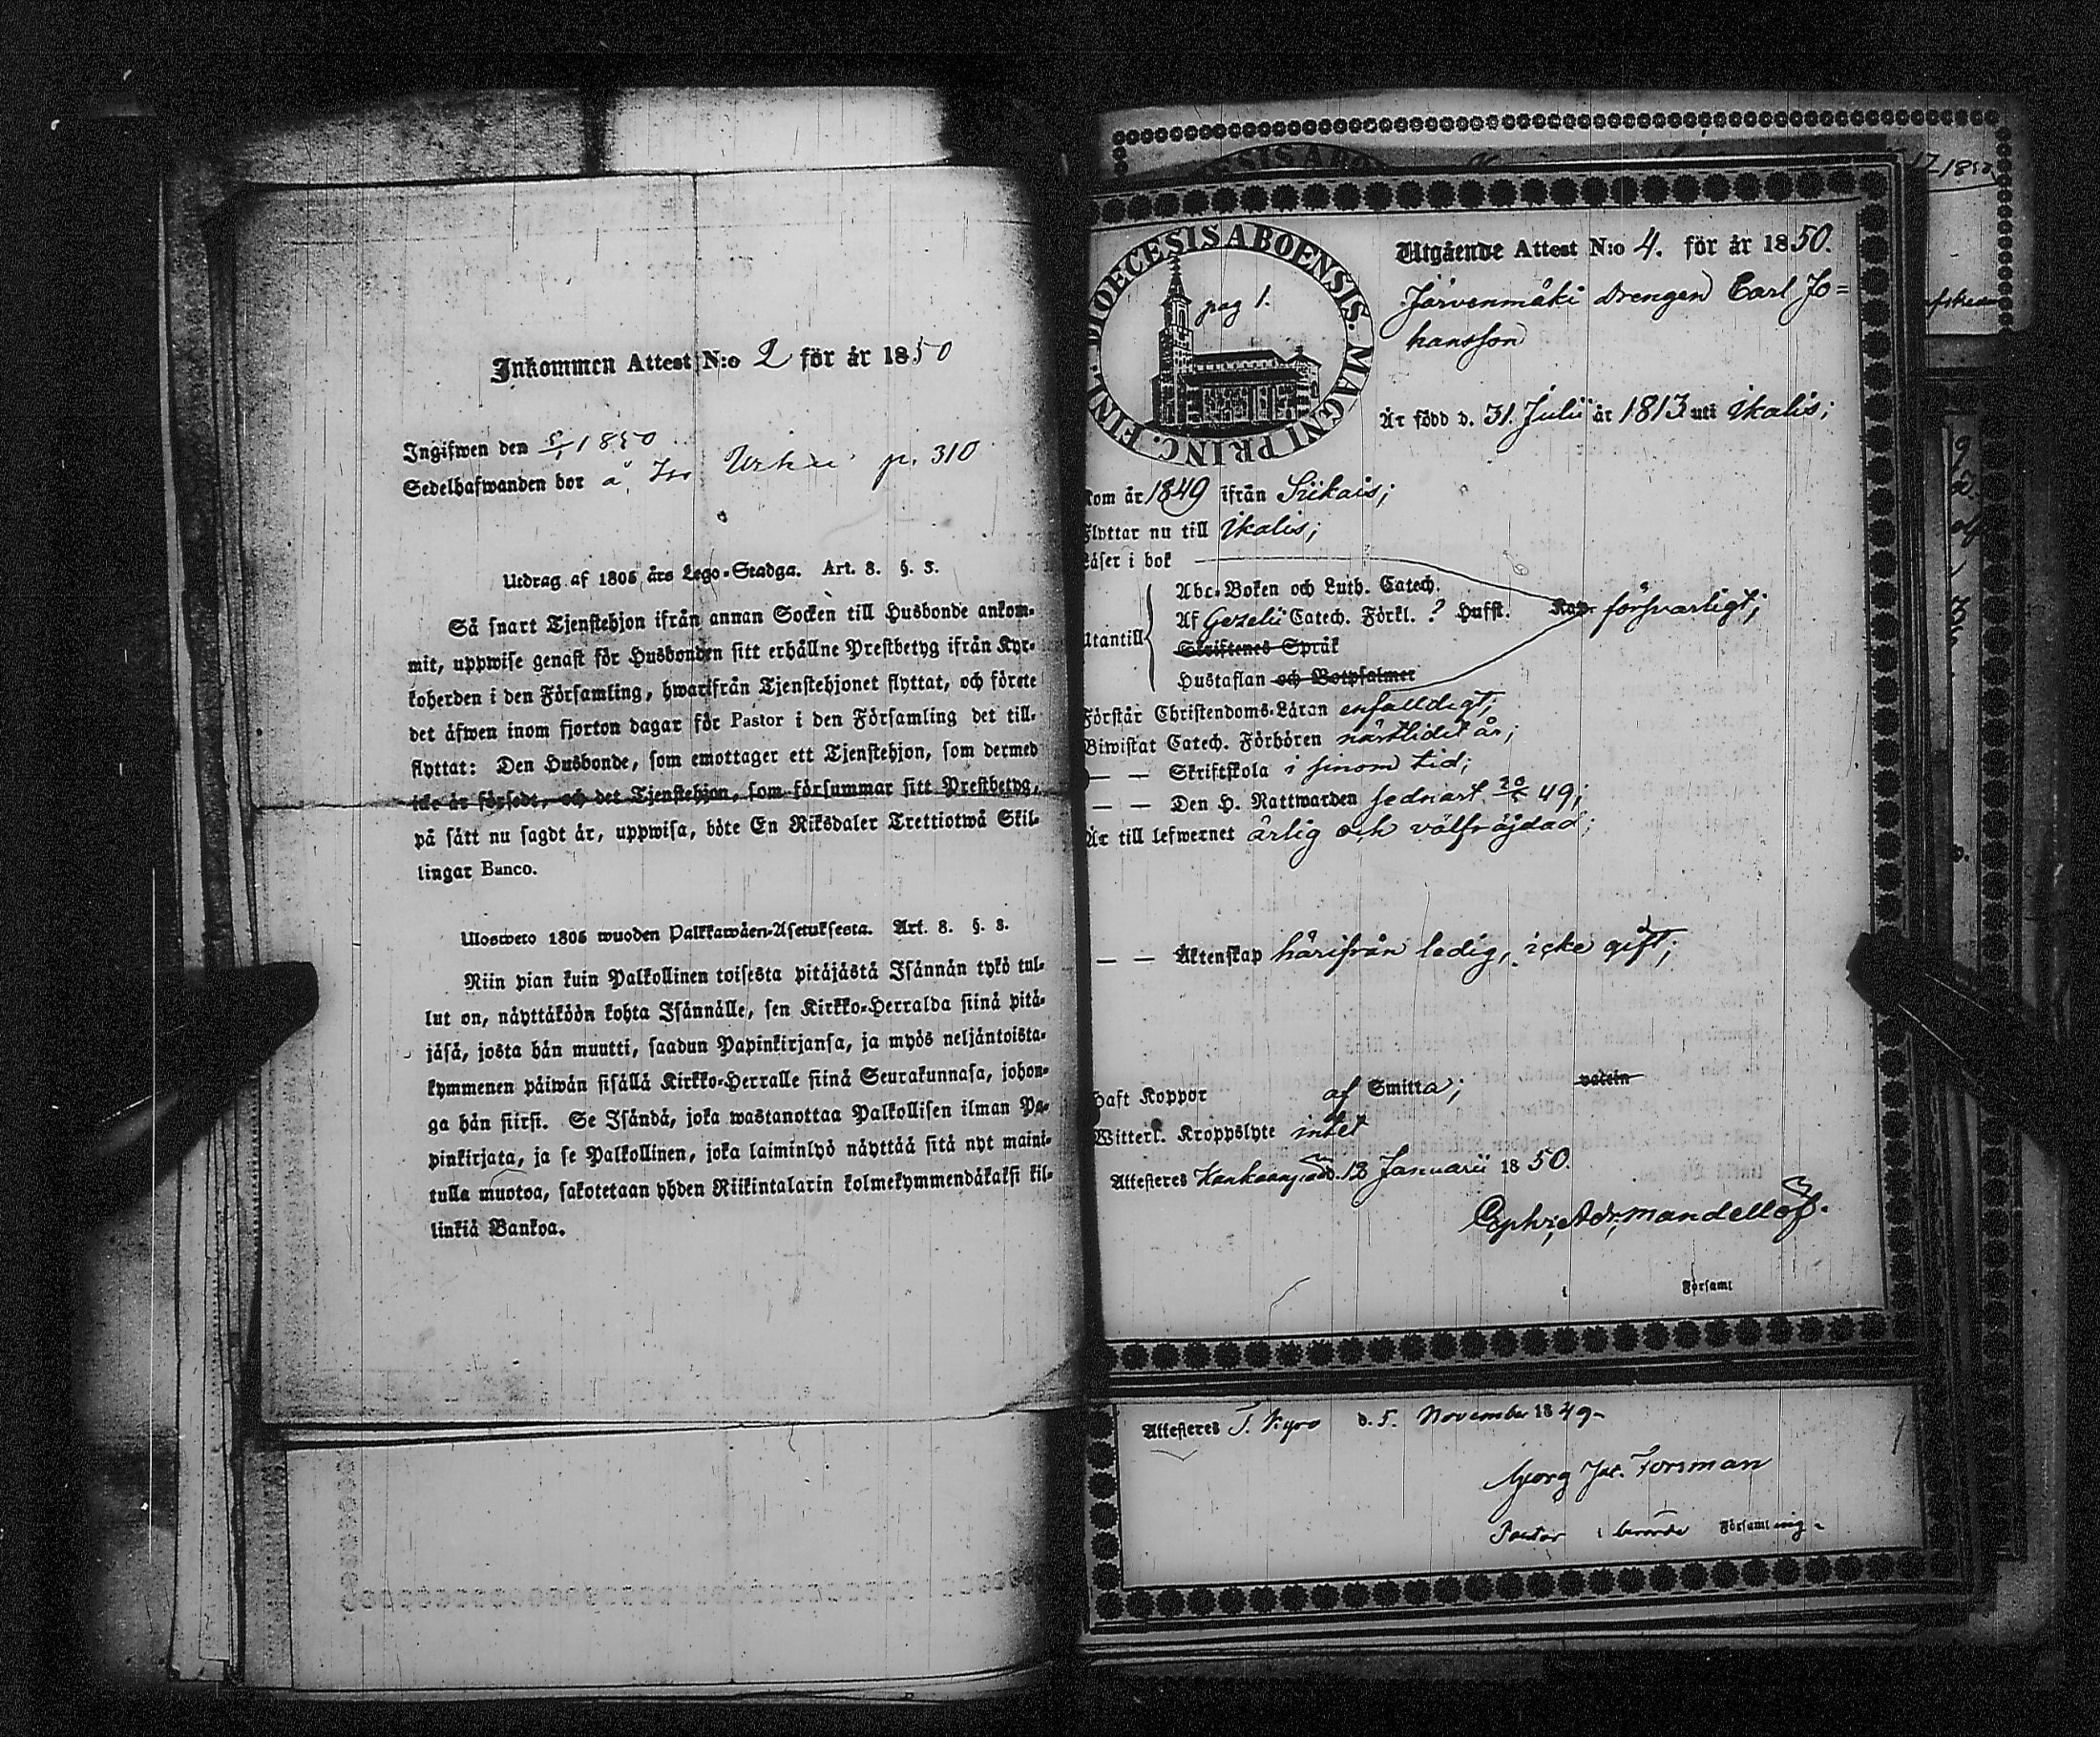 Inkommen Attest N:o 2 för år 1850
Ingifwen den 5/1 1850
Sedelhafwanden bor å p. 310
Utdrag af 1805 års Lego-Stadga. Art. 8. §. 3.
Så snart Tjenstehjon ifrån annan Socken till Husbonde ankom-
mit, uppwise genast för Husbonden sitt erhållne Prestbetyg ifrån Kyr-
koherden i den Församling, hwarifrån Tjenstehjonet flyttat, och förete
det äfwen inom fjorton dagar för Pastor i den Församling det till-
flyttat: Den Husbonde, som emottager ett Tjenstehjon, som dermed
icke är försedt, och det Tjenstehjon, som försummar sitt Prestbetyg,
på sätt nu sagdt är, uppwisa, böte En Riksdaler Trettiotwå Skil-
lingar Banco.
Uloswето 1805 wuoden Palkkawäen-Asetuksesta. Art. 8. §. 3.
Niin pian kuin Palkollinen toisesta pitäjästä Isännän tykö tul-
lut on, näyttäköön kohta Isännälle, sen Kirkko-Herralda siinä pitä-
jäsä, josta hän muutti, saadun Papinkirjansa, ja myös neljäntoista-
kymmenen päiwän sisällä Kirkko-Herralle siinä Seurakunnasa, johon-
ga hän siirsi. Se Isändä, joka wastanottaa Palkollisen ilman Pa-
pinkirjata, ja se Palkollinen, joka laiminlyö näyttää sitä nyt maini-
tulla muotoa, sakotetaan yhden Riikintalarin kolmekymmendäkaksi kil-
linkiä Bankoa.
DIOECESIS ABOENSIS. MAGNI PRINC. FINL.
pag 1.
Utgående Attest N:o 4. för år 1850.
Järvenmäki drengen Carl Jo=
hansson
Är född d. 31. Julii år 1813 uti Ikalis;
Kom år 1849 ifrån Siikais;
Flyttar nu till Ikalis;
Läser i bok
Utantill
Abc-Boken och Luth. Catech.
Af Gezelii Catech. Förkl. ? Hufst. Kap. försvarligt;
Skriftenes Språk
Hustaflan och Botpsalmer
Förstår Christendoms-Läran enfalldigt;
Biwistat Catech. Förhören nästlidet år;
— — Skriftskola i sinom tid;
— — Den H. Nattwarden sednast 20/5 49;
Är till lefwernet ärlig och välfräjdad;
— — Äktenskap härifrån ledig, icke gift;
Haft Koppor af Smitta; vaccin
Witterl. Kroppslyte intet
Attesteres Kankaanpää d. 18 Januarii 1850.
i Församl
Attesteres T. Kyro d. 5. November 1849-
Georg Jac. Forsman
Pastor i berörde Församling-